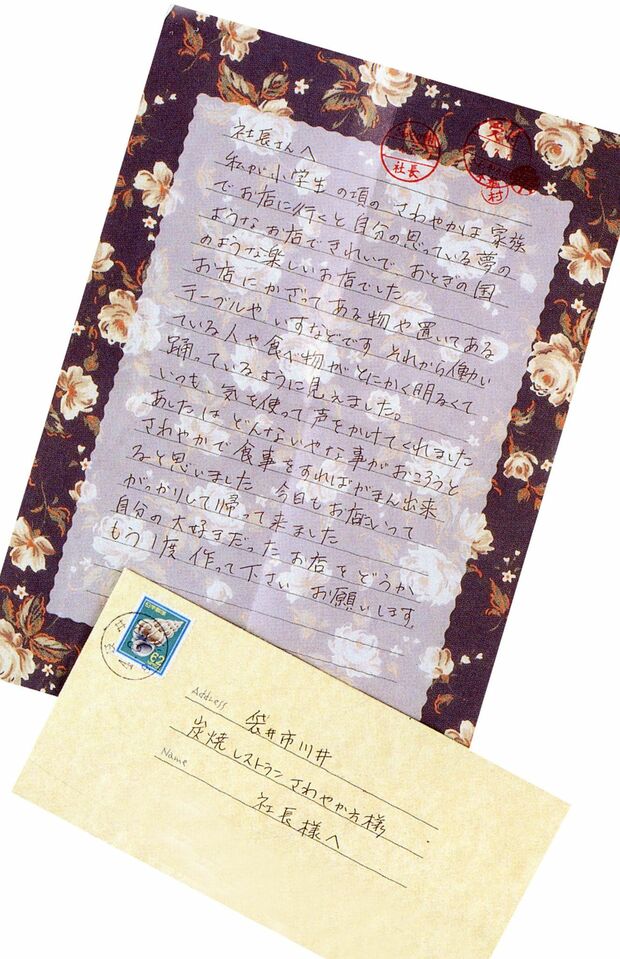 社長さんへ
私が小学生の頃の さわやかは 家族
でお店に行くと 自分の思っている夢の
ようなお店できれいで おとぎの国
のような楽しいお店でした
お店にかざってある物や置いてある
テーブルや いすなどです それから働い
ている人や食べ物がとにかく明るくて
踊っているように見えました。
いつも 気を使って声をかけてくれました
あしたは どんないやな事がおころうと
さわやかで食事をすればがまん出来
ると思いました 今日もお店にいって
がっかりして帰って来ました
自分の大好きだったお店を どうか
もう1度 作って下さい お願いします。
社長
村
日本郵便
62
Address
袋井市川井
炭焼レストランさわやか方様
Name
社長様へ